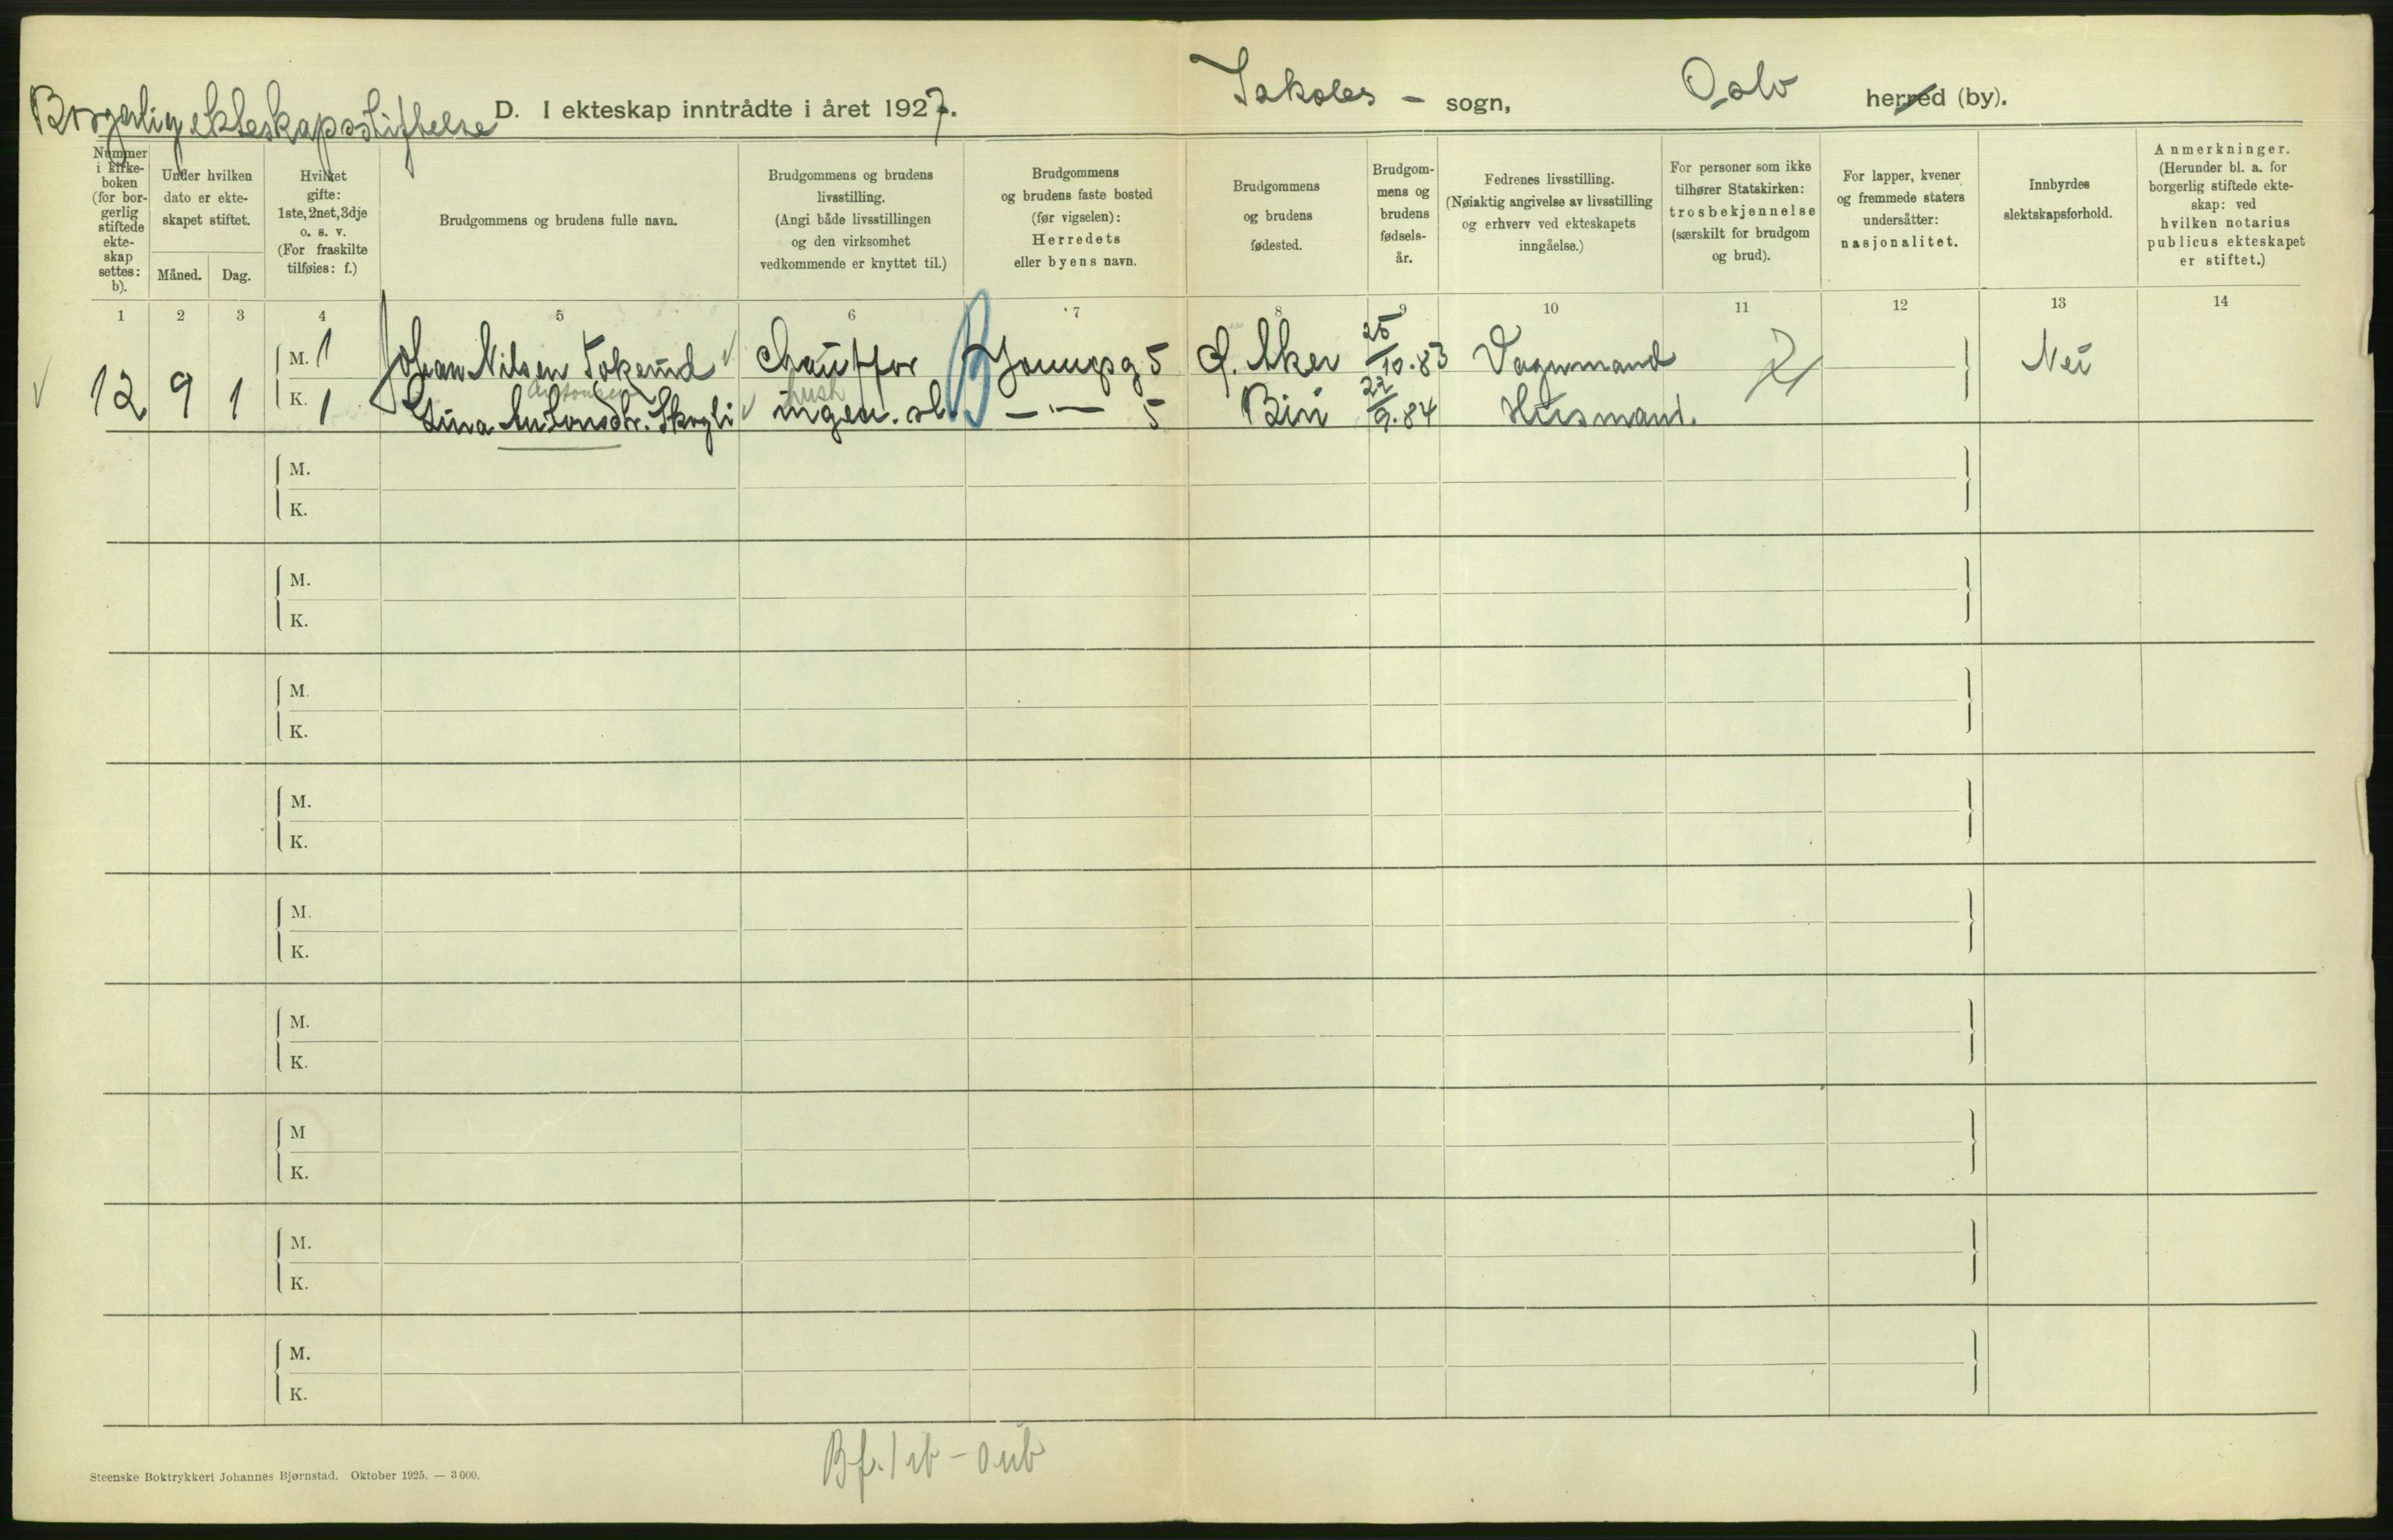 Borgerlig ekteskapsstiftelse D. I ekteskap inntrådte i året 1927. Jakobs - sogn, Oslo herred (by).
Nummer i kirke-boken (for bor-gerlig stiftede ekte-skap settes: b).
Under hvilken dato er ekte-skapet stiftet.
Måned. Dag.
Hvilket gifte: 1ste, 2net, 3dje o. s. v. (For fraskilte tilføies: f.)
Brudgommens og brudens fulle navn.
Brudgommens og brudens livsstilling. (Angi både livsstillingen og den virksomhet vedkommende er knyttet til.)
Brudgommens og brudens faste bosted (før vigselen): Herredets eller byens navn.
Brudgommens og brudens fødested.
Brudgom-mens og brudens fødsels-år.
Fedrenes livsstilling. (Nøiaktig angivelse av livsstilling og erhverv ved ekteskapets inngåelse.)
For personer som ikke tilhører Statskirken: trosbekjennelse (særskilt for brudgom og brud).
For lapper, kvener og fremmede staters undersåtter: nasjonalitet.
Innbyrdes slektskapsforhold.
Anmerkninger. (Herunder bl. a. for borgerlig stiftede ekte-skap: ved hvilken notarius publicus ekteskapet er stiftet.)
1 2 3 4 5 6 7 8 9 10 11 12 13 14
M. 1 Johan Nilsen Tokerud Chauffør Youngsg 5 Ø. Aker 25/10.83 Vognmand Nei
12 9 1 K. 1 Lina Antonsdtr. Skogli Antonsen ingen. hush B -"- 5 Biri 22/9.84 Husmand.
M.
K.
M.
K.
M.
K.
M.
K.
M.
K.
M.
K.
M
K.
M.
K.
M.
K.
Steenske Boktrykkeri Johannes Bjørnstad. Oktober 1925. — 3 000.